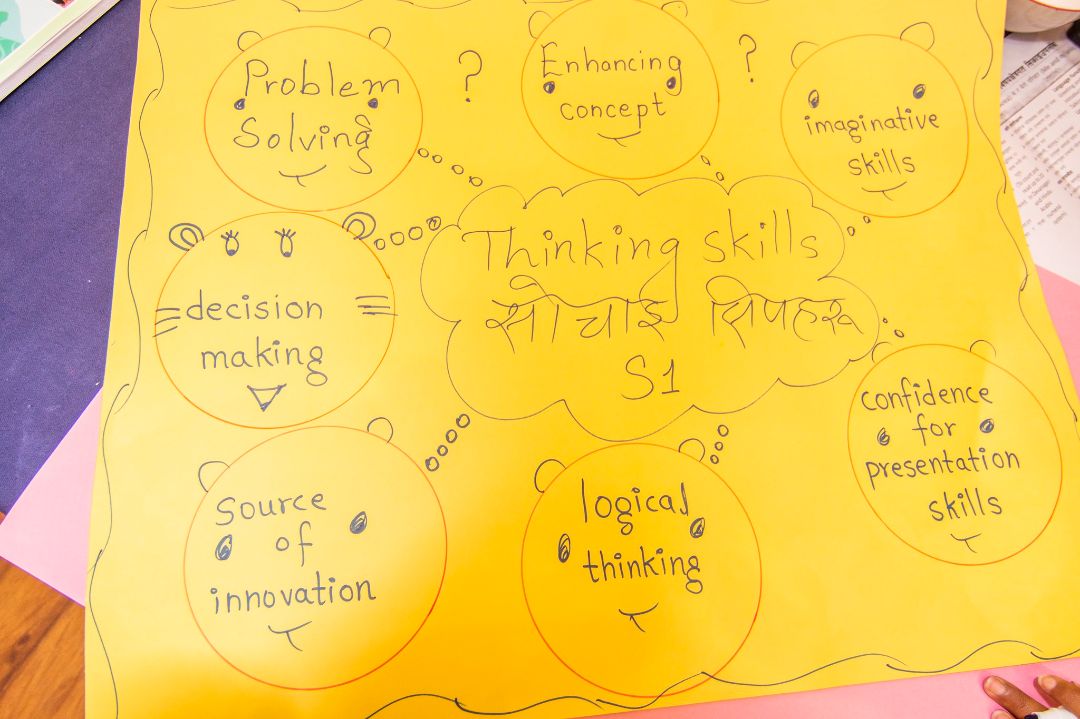 Problem
Solving
?
Enhancing
concept
?
imaginative
skills
Thinking skills
सोचाई सिपहरू
S1
decision
making
confidence
for
presentation
skills
source
of
innovation
logical
thinking